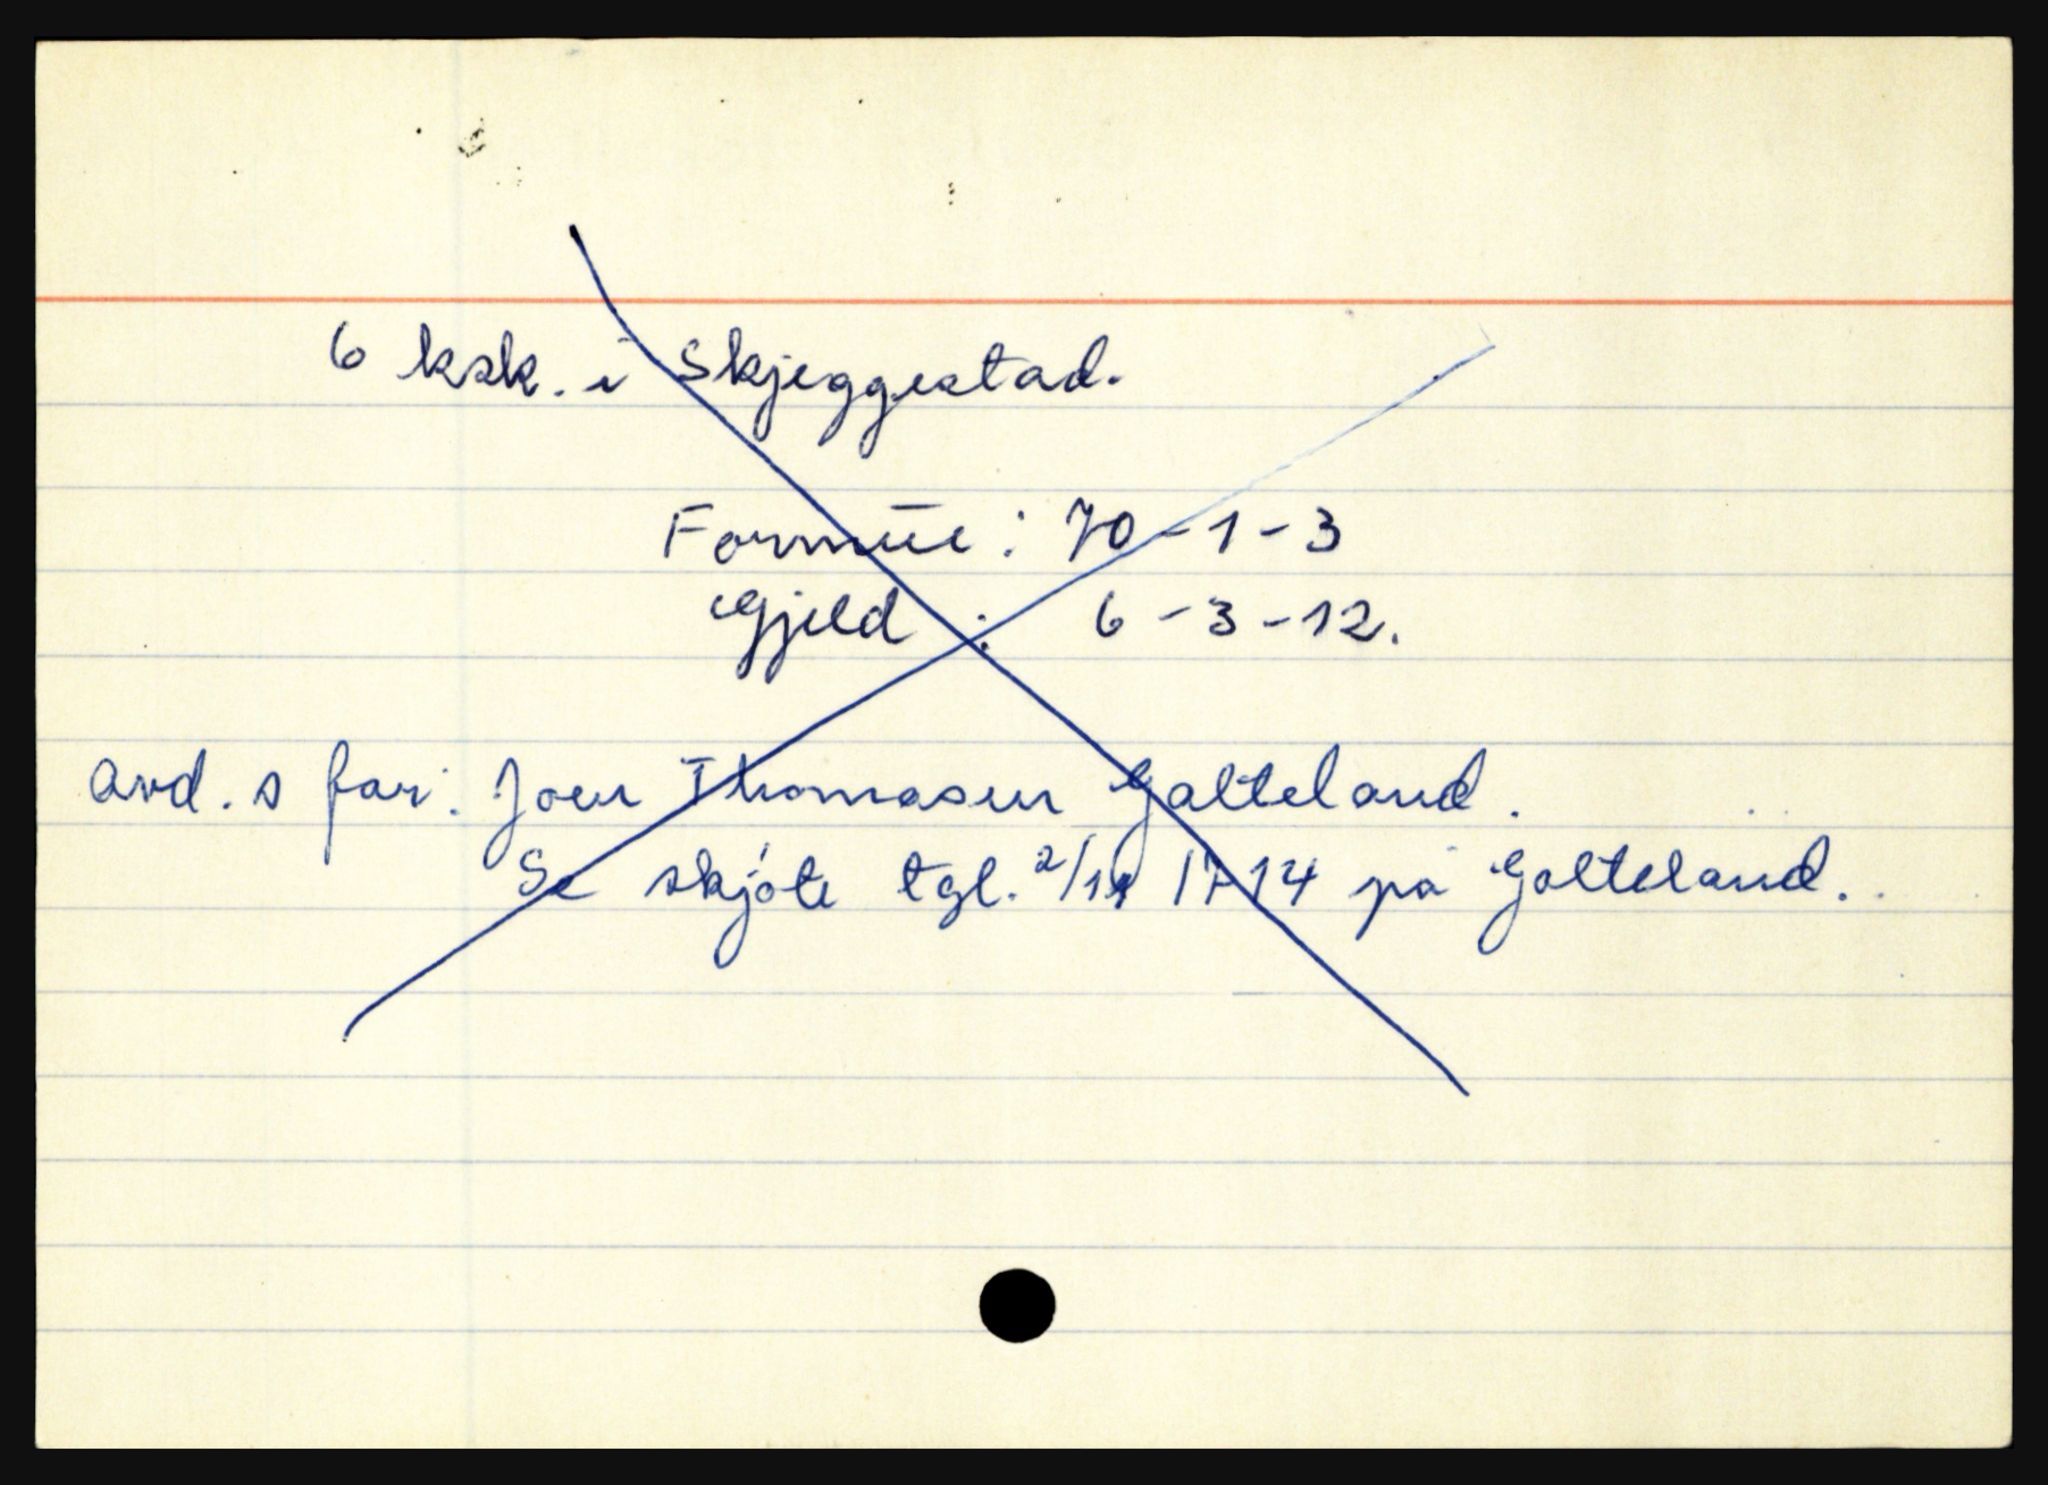 6 ksk. i Skjeggestad.
Formue: 70-1-3
Gjeld: 6-3-12.
avd. s far: Joen Thomasen Galteland.
Se skjöte tgl. 2/11 1714 på Galteland.